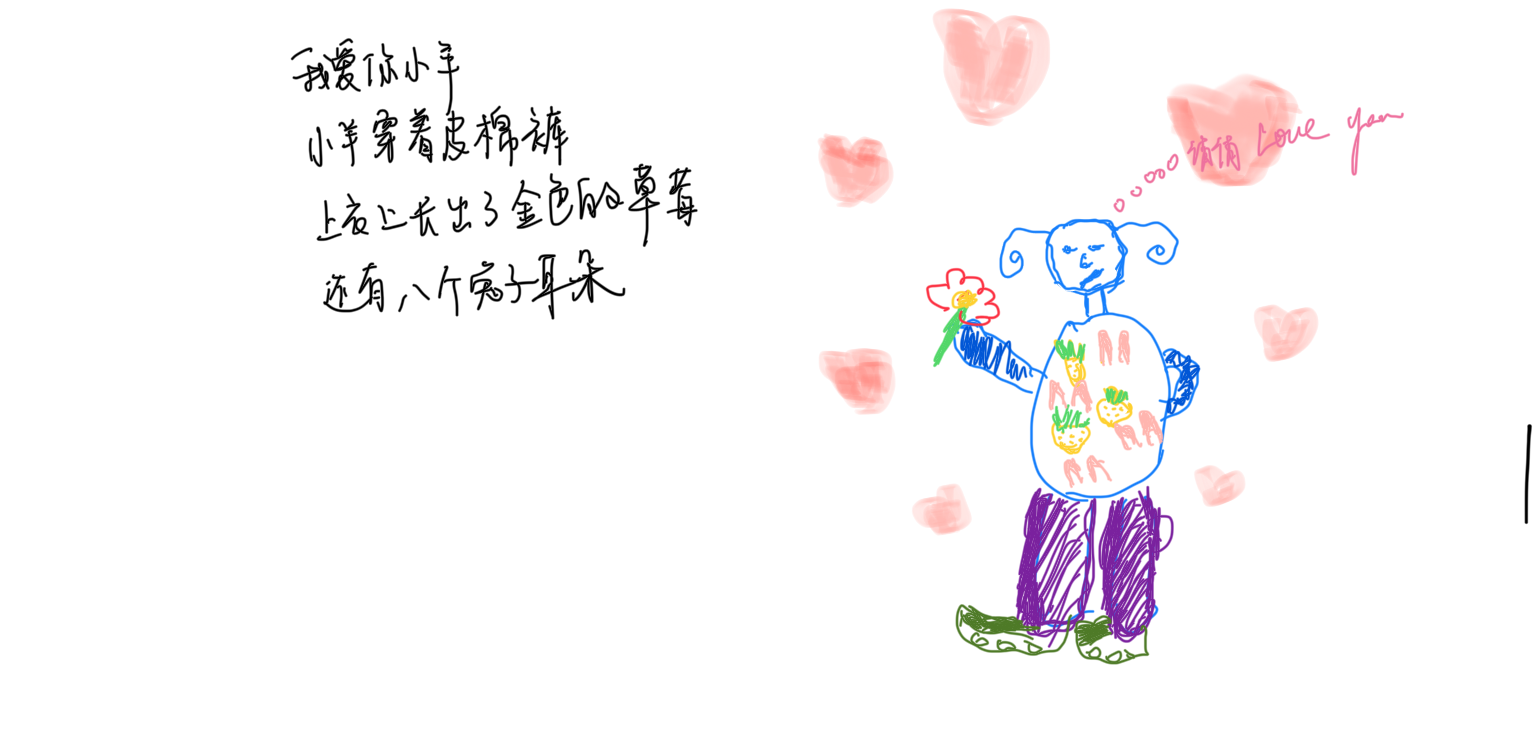 我爱你小羊
小羊穿着皮棉裤
上衣上长出了金色的草莓
还有八个兔子耳朵
俏俏 Love you